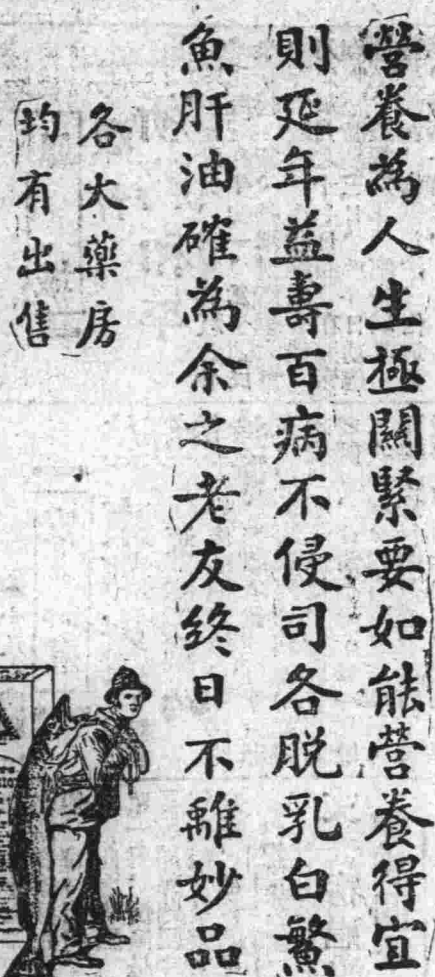 營養為人生極關緊要如能營養得宜
則延年益壽百病不侵司各脫乳白鰵
魚肝油確為余之老友終日不離妙品
各大藥房
均有出售